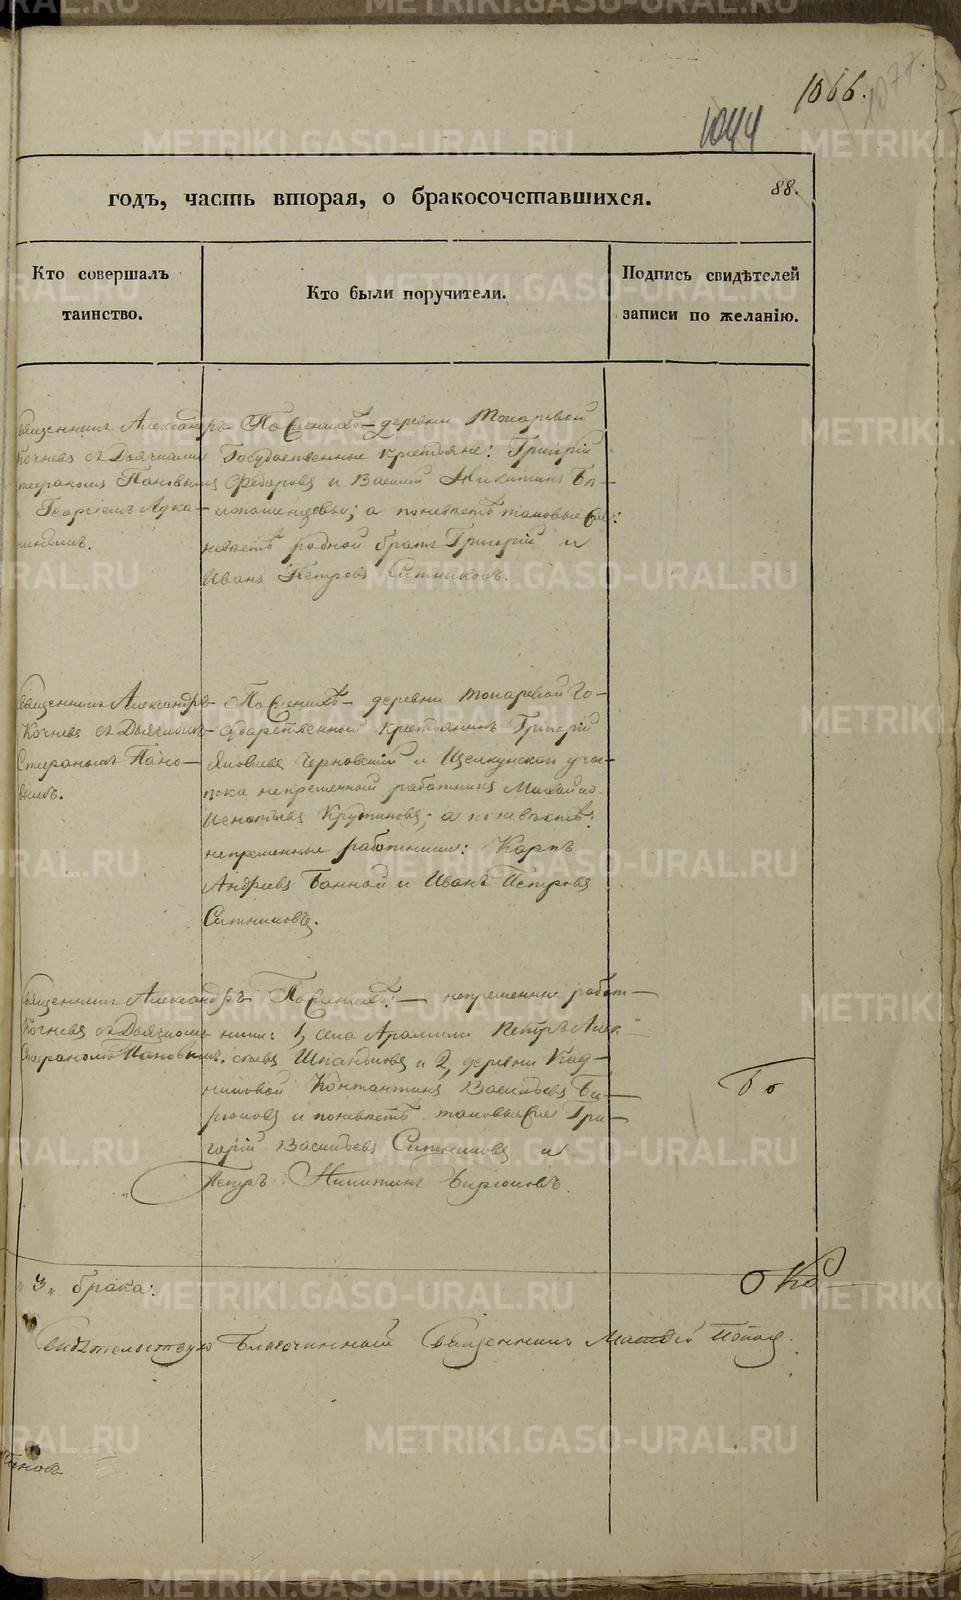 1066.
1044
1077.
88.
годъ, часть вторая, о бракосочетавшихся.
Кто совершалъ
таинство.
Кто были поручители.
Подпись свидѣтелей
записи по желанію.
Священникъ Александръ
Кочневъ съ Дьячками
Стефаномъ Пановымъ
Георгіемъ Лука-
нинымъ.
По женихѣ деревни Токаревой
Государственные крестьяне: Григорій
Федоровъ и Василій Никитинъ Бѣ-
лопашенцевы; а по невѣстѣ таковые же:
невѣстѣ родной братъ Григорій и
Иванъ Петровъ Ситниковъ.
Священникъ Александръ
Кочневъ съ Дьячкомъ
Стефаномъ Пано-
вымъ.
По женихѣ деревни Токаревой Го-
сударственной крестьянинъ Григорій
Яковлевъ Черновскій и Щелкунскаго уча-
стка непременной работникъ Михайло
Игнатьевъ Крутиковъ; а по невѣстѣ:
непременные работники: Карпъ
Андреевъ Банной и Иванъ Петровъ
Ситниковъ.
Священникъ Александръ
Кочневъ съ Дьячкомъ
Стефаномъ Пановымъ.
По женихѣ: непременные работ-
ники: 1, села Арамили Петръ Алек-
сѣевъ и 2, деревни Кад-
никовой Константинъ Васильевъ Би-
рюковъ и по невѣстѣ таковые же Гри-
горій Васильевъ Ситниковъ и
Петръ Никитинъ Бирюковъ.
Бо
"3" брака:
Око
Свидѣтельствую Благочинный Священникъ Матвѣй Поповъ.